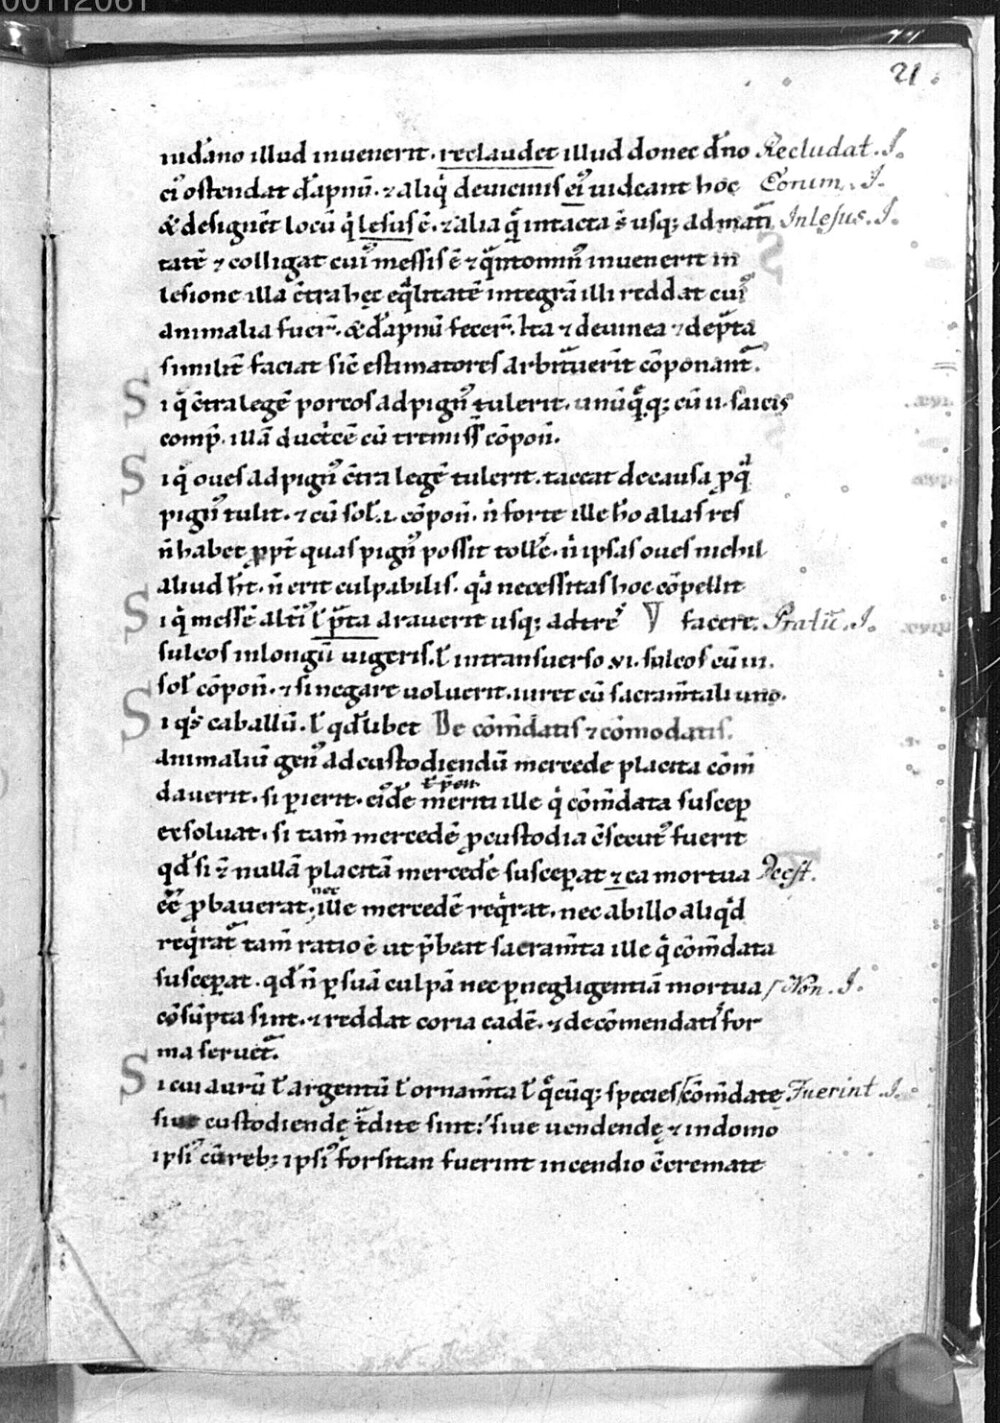 00112061
21
in dāno illud invenerit. reclaudet illud donec dño Recludat. I.
ei᷒ ostendat dāpnū. ⁊ aliq̇ de vicinis ei᷒ videant hoc Eorum. I.
& designēt locū q̇ lesus ē. ⁊ alia q̄ intacta s̄ usq; ad mati Inlesus. I.
tatē ⁊ colligat cui᷒ messis ē ⁊ q̄ntom̄ inuenerit in
lesione illa ēt᷒ra hęc eq̄litatē integrā illi reddat cui᷒
animalia fuer̄. & dāpnū fecer̄. Ita ⁊ de vinea ⁊ de p̄ta
similit̄ faciat sic̄ estimatores arbit᷒uerīt cōponant᷒.
Si q̇ c̄tra legē porcos ad pign᷒ tulerit. unūq̄q; cū ii. saicis
comp̄. illā duct̄cē cū tremiss̄ cōpon̄.
Si q̇ oues ad pign᷒ c̄tra legē tulerit. taceat de causa p̱ q̄
pign᷒ tulit. ⁊ cū sol̄. i. cōpon̄. n̄ forte ille h̄o alias res
n̄ habet p̱pt̄ quas pign᷒ possit toll̄e. n̄ ipsas oues nichil
aliud h̄t. n̄ erit culpabilis. q̇a necessitas hoc cōpellit
Si q̇ messē alt̄i᷒ ł p̄ta arauerit usq; ad tre᷒ V facere. Pratū. I.
sulcos in longū uigeris. ł in transuerso .vi. sulcos cū iii.
sol̄ cōpon̄. ⁊ si negare uoluerit. iuret cū sacram̄tali uno.
Si q̇s caballū. ł qd̄libet De cōm̄datis ⁊ cōmodatis.
animaliū gen᷒ ad custodiendū mercede placita cōm̄
dauerit. si p̱ierit. ei᷒de ł p̱eu. meriti ille q̇ cōm̄data suscep̱
exsoluat. si tam̄ mercedē p̱ custodia c̄secut᷒ fuerit
qd̄ si ⁊ nullā placitā mercedē suscep̱at ⁊ ea mortua Deest.
ēē p̱bauerat. nec ille mercedē req̇rat. nec ab illo aliq̇d
req̇rat᷒ tam̄ ratiōe ut p̄beat sacram̄ta ille q̇ cōm̄data
suscep̱at. qd̄ n̄ p̱ suā culpā nec p̱ negligentiā mortua / Non. I.
cōsūpta sint. ⁊ reddat coria eadē. ⁊ de cōmendati᷒ for
ma seruet᷒.
Si cui aurū ł argentū ł ornam̄ta ł q̄cūq; species / cōm̄date Fuerint I.
siue custodiendę t᷒dite sint: siue uendendę ⁊ in domo
ipsi᷒ cū reb; ipsi᷒ forsitan fuerint incendio c̄cremate